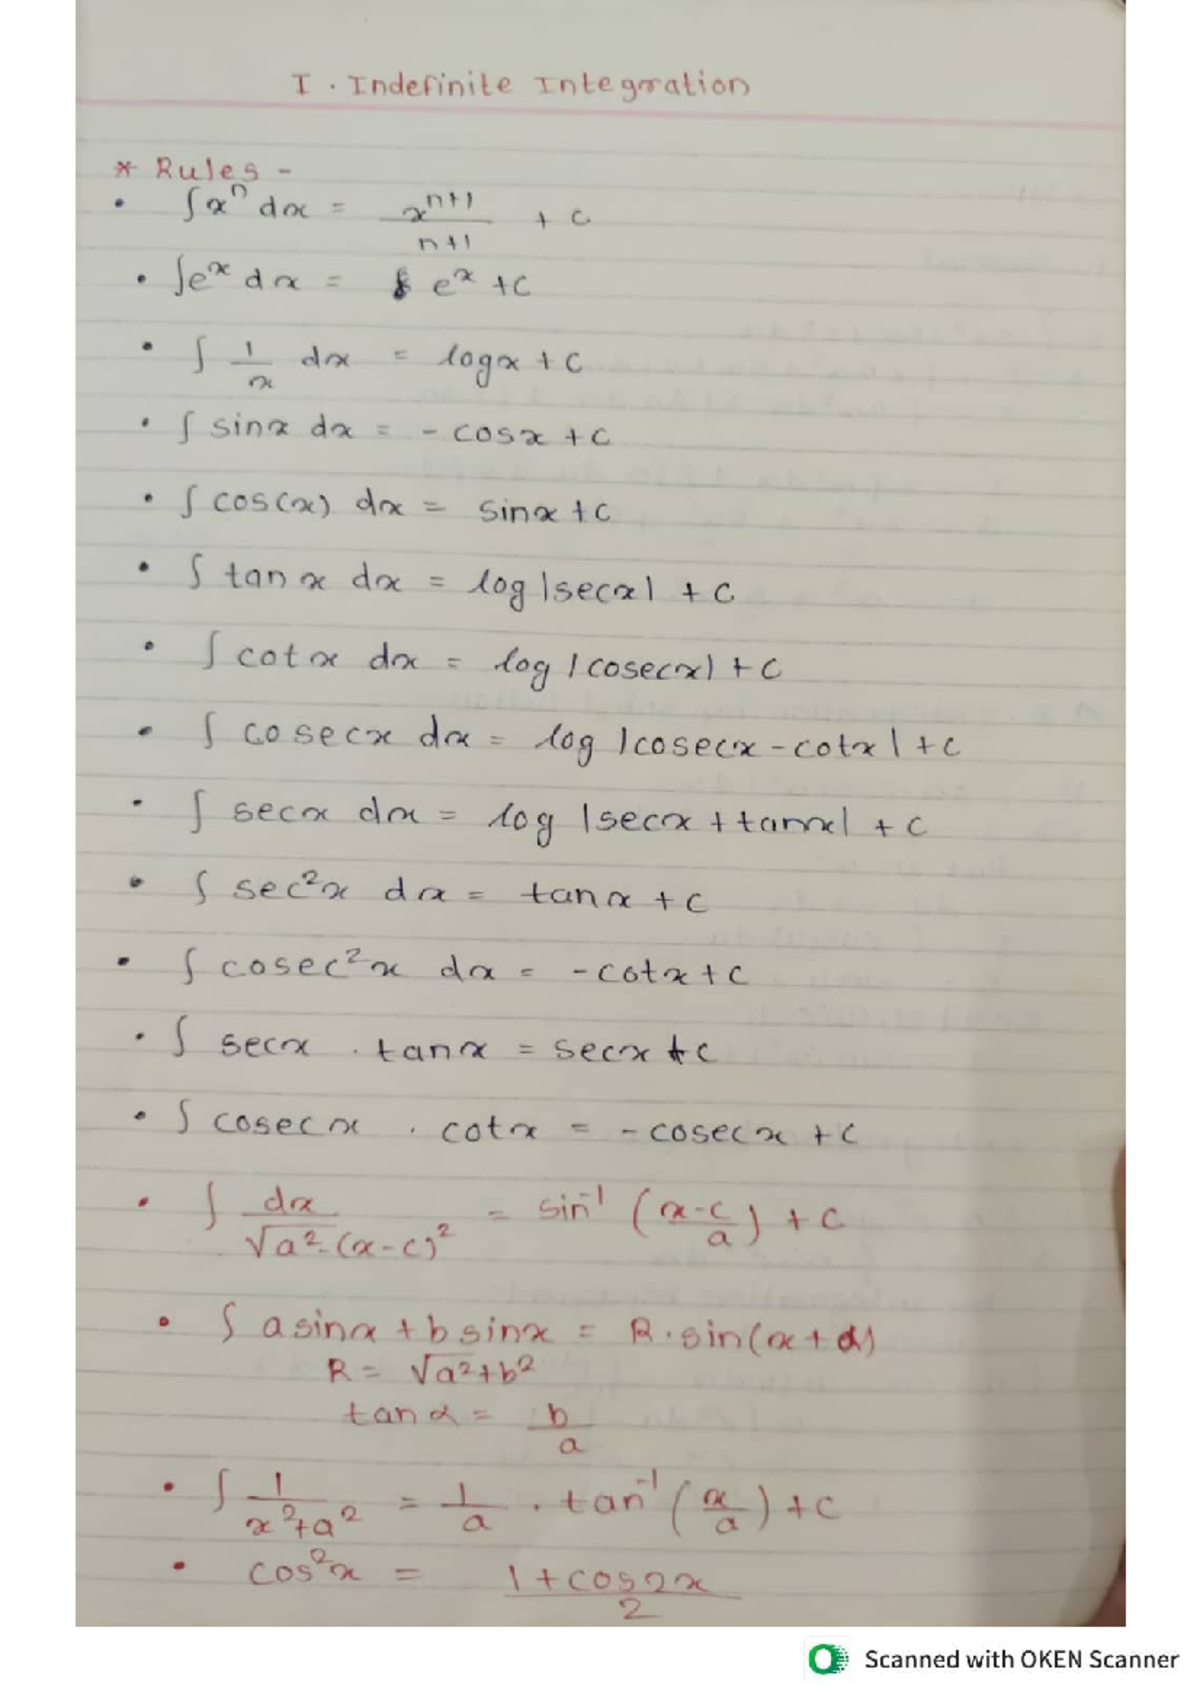 I . Indefinite Integration
* Rules -
• ∫xⁿ dx = xⁿ⁺¹/n+1 + c
• ∫eˣ dx = eˣ +c
• ∫ 1/x dx = logx + c
• ∫ sinx dx = - cosx + c
• ∫ cos(x) dx = sinx + c
• ∫ tan x dx = log |secx| + c
• ∫ cotx dx = log |cosecx| + c
• ∫ cosecx dx = log |cosecx - cotx| + c
• ∫ secx dx = log |secx + tanx| + c
• ∫ sec²x dx = tanx + c
• ∫ cosec²x dx = -cotx + c
• ∫ secx . tanx = secx + c
• ∫ cosecx . cotx = - cosecx + c
• ∫ dx/√a²-(x-c)² = sin⁻¹ (x-c/a) + c
• ∫ asinx + bsinx = R.sin(x + α)
R = √a²+b²
tan α = b/a
• ∫ 1/x²+a² = 1/a . tan⁻¹ (x/a) + c
• cos²x = 1+cos2x/2
Scanned with OKEN Scanner